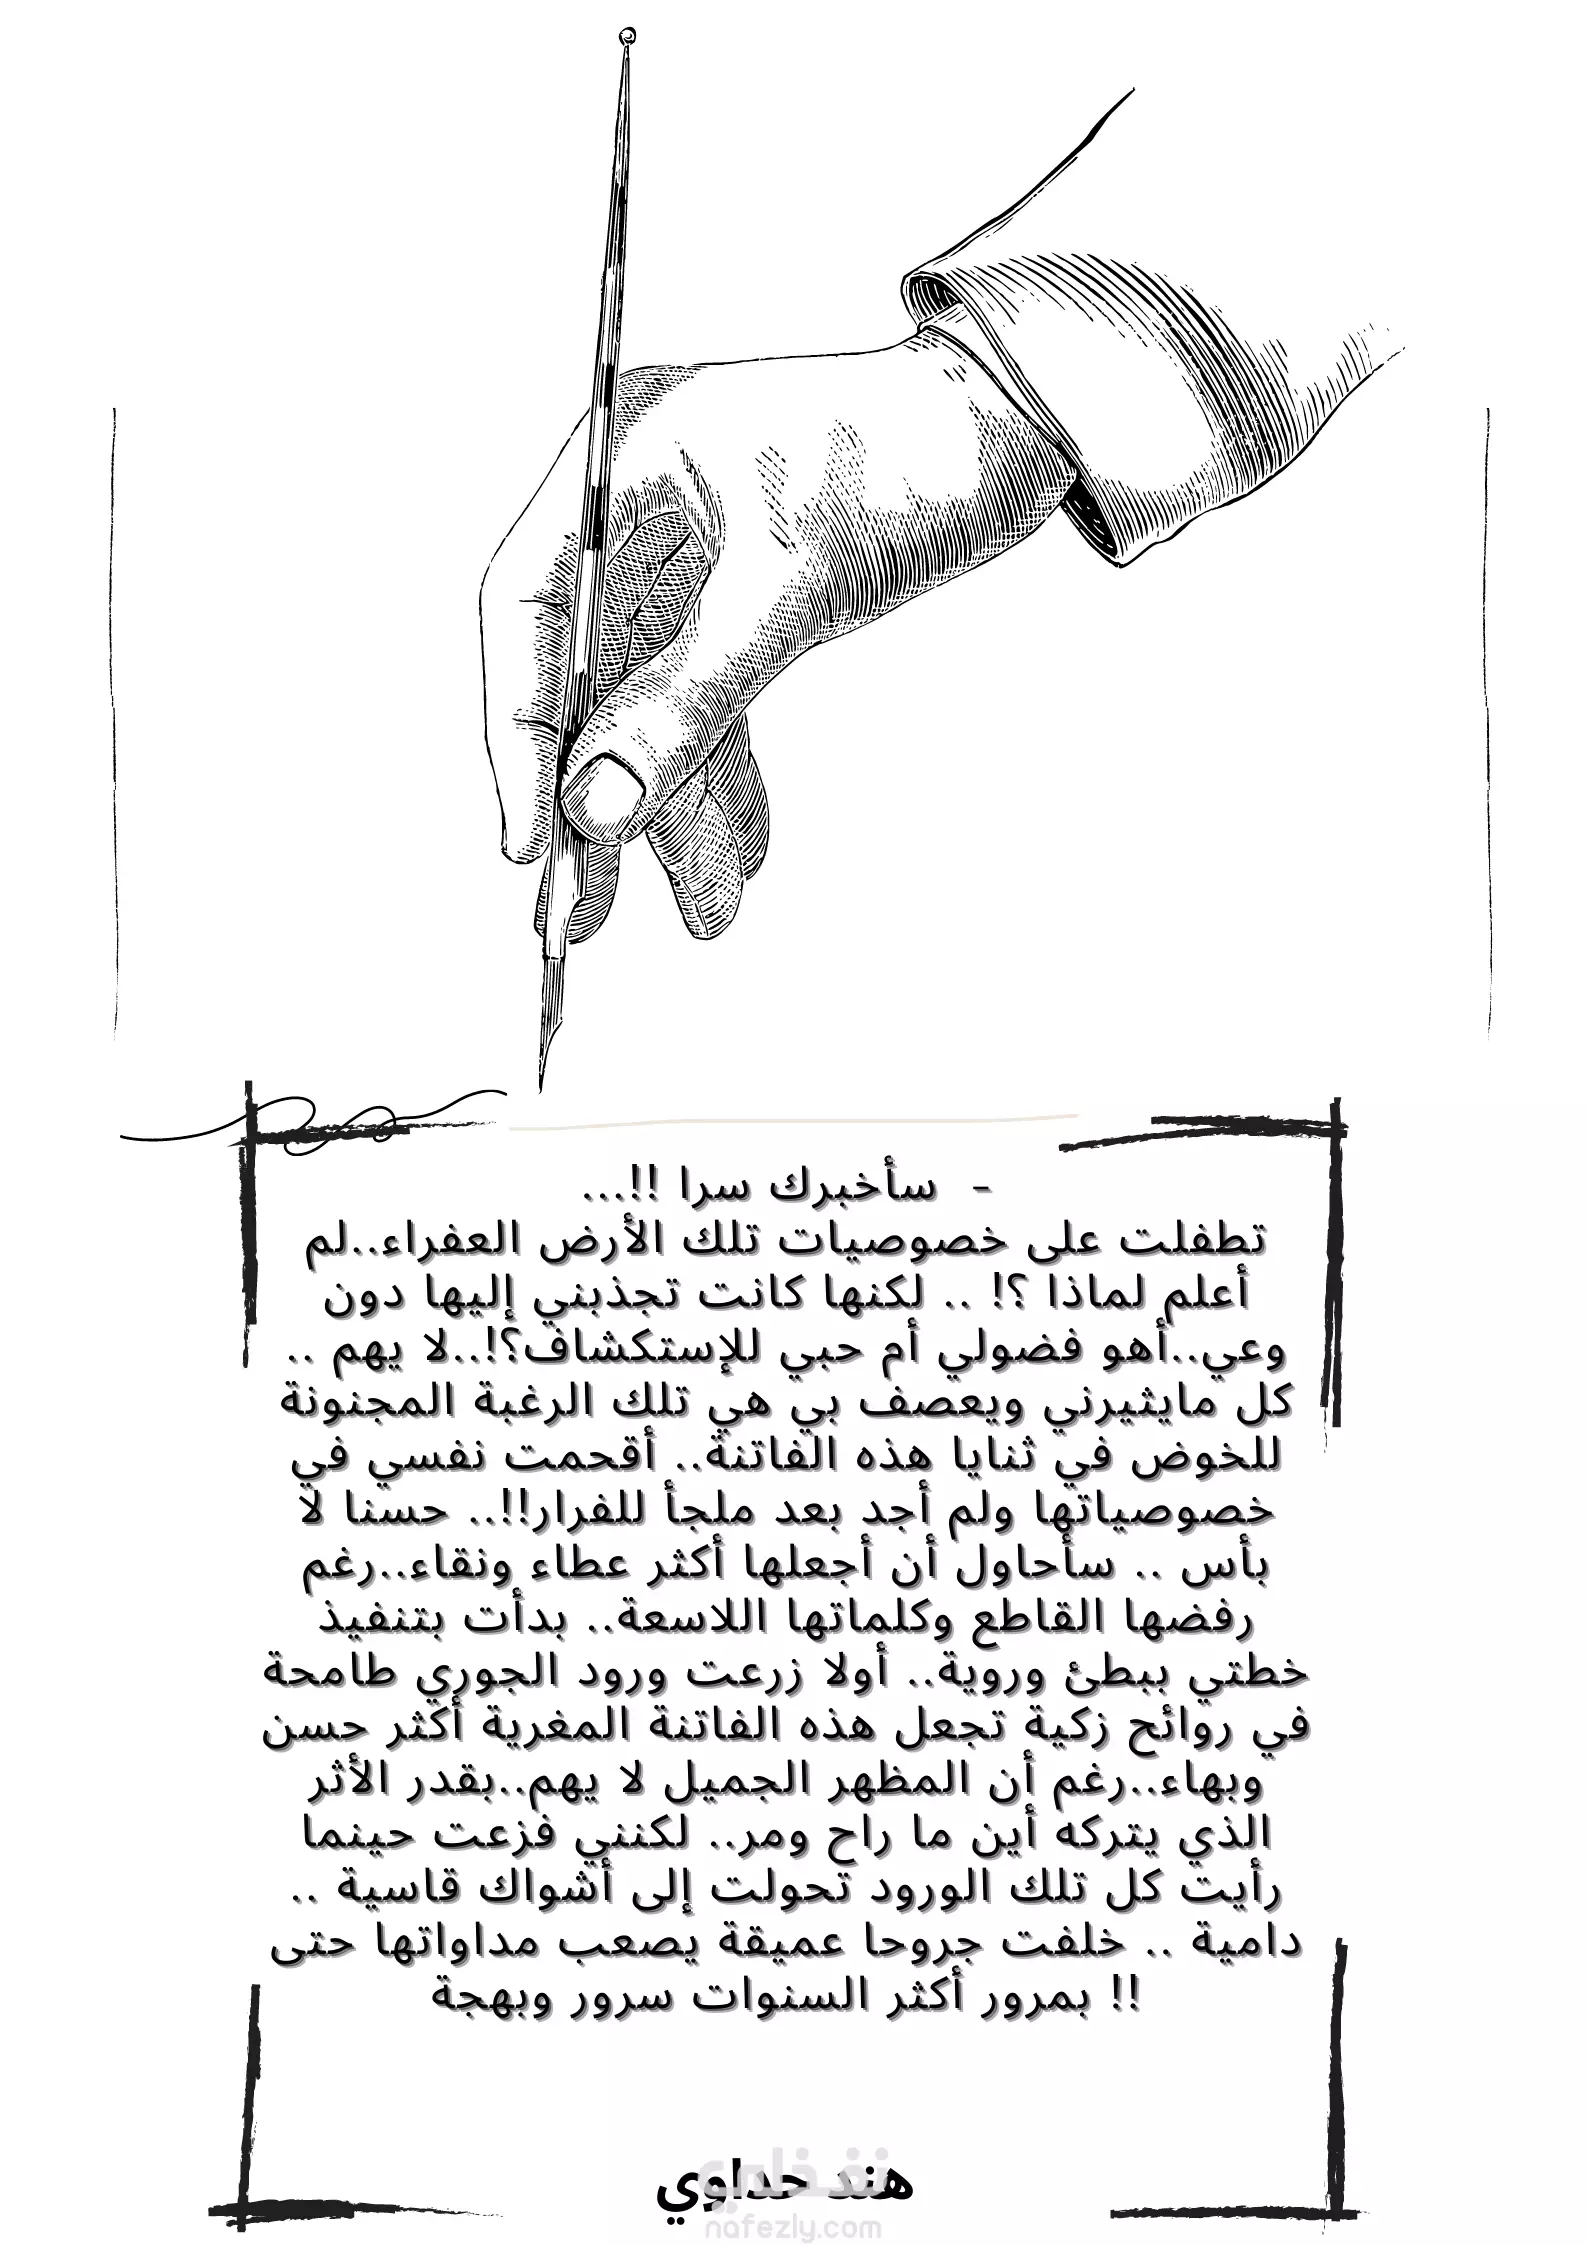 - سأخبرك سرا !!...
تطفلت على خصوصيات تلك الأرض العفراء..لم
أعلم لماذا ؟! .. لكنها كانت تجذبني إليها دون
وعي..أهو فضولي أم حبي للإستكشاف؟!..لا يهم ..
كل مايثيرني ويعصف بي هي تلك الرغبة المجنونة
للخوض في ثنايا هذه الفاتنة.. أقحمت نفسي في
خصوصياتها ولم أجد بعد ملجأ للفرار!!.. حسنا لا
بأس .. سأحاول أن أجعلها أكثر عطاء ونقاء..رغم
رفضها القاطع وكلماتها اللاسعة.. بدأت بتنفيذ
خطتي ببطئ وروية.. أولا زرعت ورود الجوري طامحة
في روائح زكية تجعل هذه الفاتنة المغرية أكثر حسن
وبهاء..رغم أن المظهر الجميل لا يهم..بقدر الأثر
الذي يتركه أين ما راح ومر.. لكنني فزعت حينما
رأيت كل تلك الورود تحولت إلى أشواك قاسية ..
دامية .. خلفت جروحا عميقة يصعب مداواتها حتى
!! بمرور أكثر السنوات سرور وبهجة
هند حداوي
نفذلي
nafezly.com